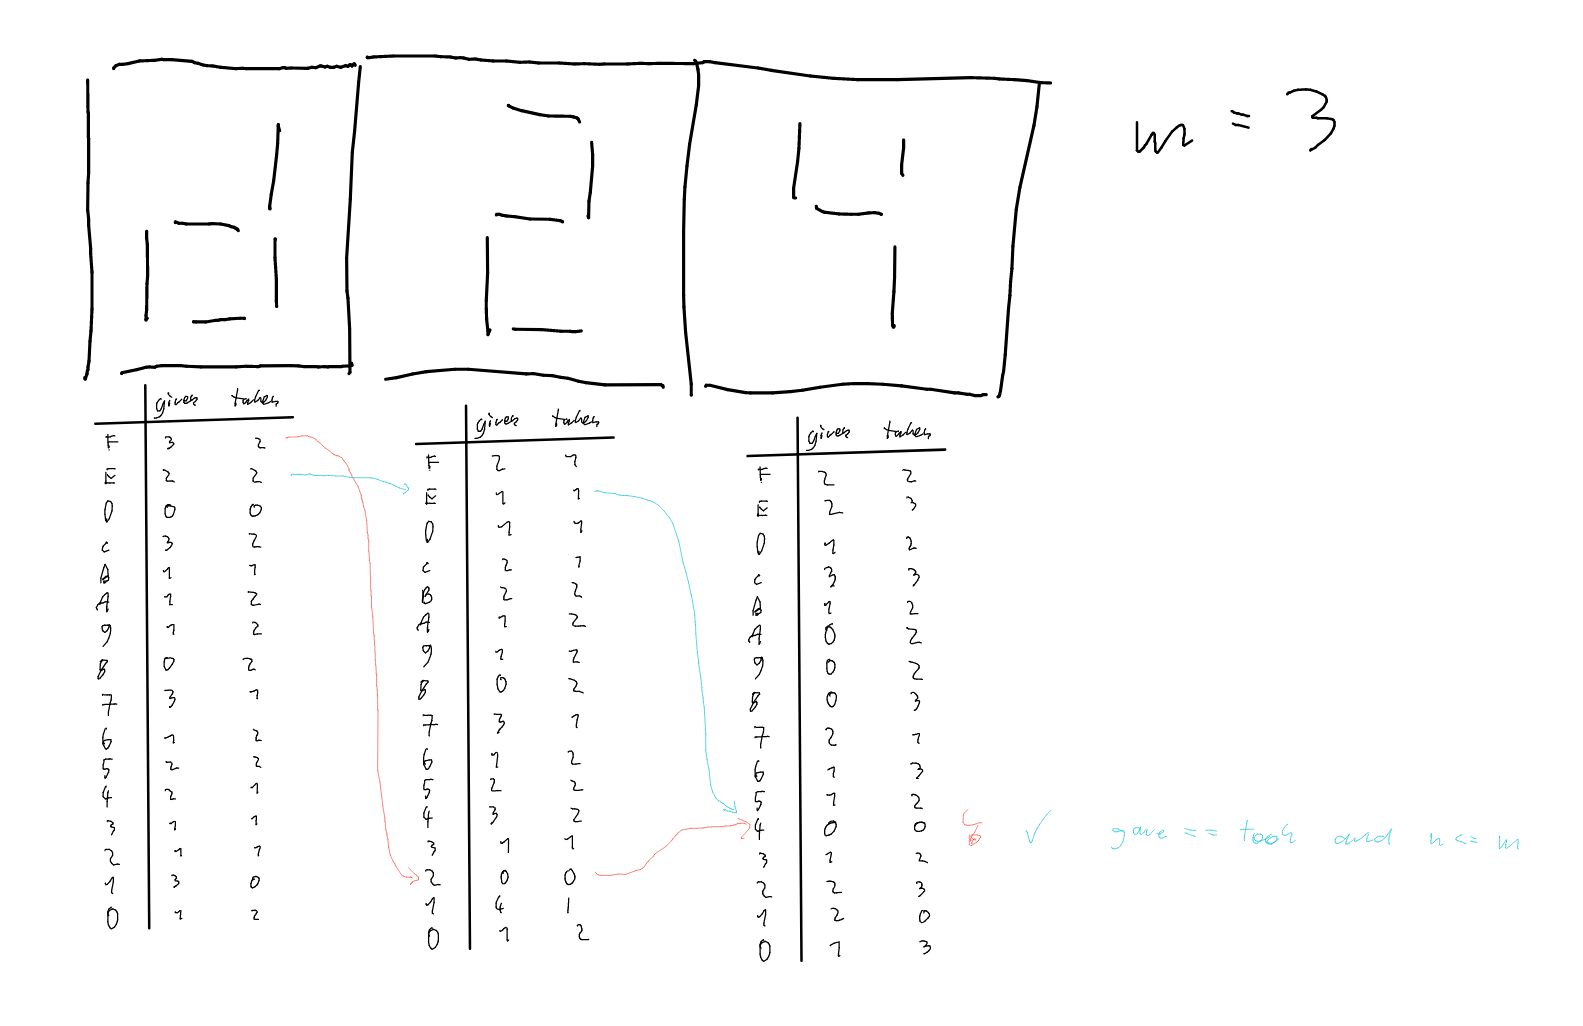 m = 3
given taken
F 3 2
E 2 2
D 0 0
c 3 2
B 1 1
A 1 2
9 1 2
8 0 2
7 3 1
6 1 2
5 2 2
4 2 1
3 1 1
2 1 1
1 3 0
0 1 2
given taken
F 2 1
E 1 1
D 1 1
c 2 1
B 2 2
A 1 2
9 1 2
8 0 2
7 3 1
6 1 2
5 2 2
4 3 2
3 1 1
2 0 0
1 4 1
0 1 2
given taken
F 2 2
E 2 3
D 1 2
c 3 3
B 1 2
A 0 2
9 0 2
8 0 3
7 2 1
6 1 3
5 1 2
4 0 0 ✓ gave == took and n <= m
3 1 2
2 2 3
1 2 0
0 1 3